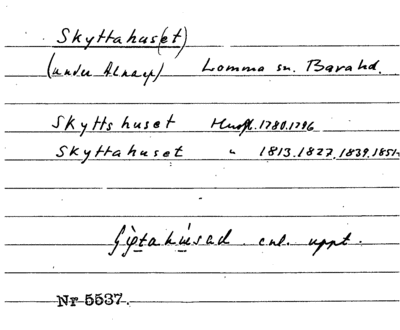 Skyttahus(et)
(under Alnarp) Lomma sn. Bara hd.
Skyttshuset Husfl. 1780.1796
Skyttahuset " 1813.1827.1839.1851.
enl. uppt.
Nr 5537.